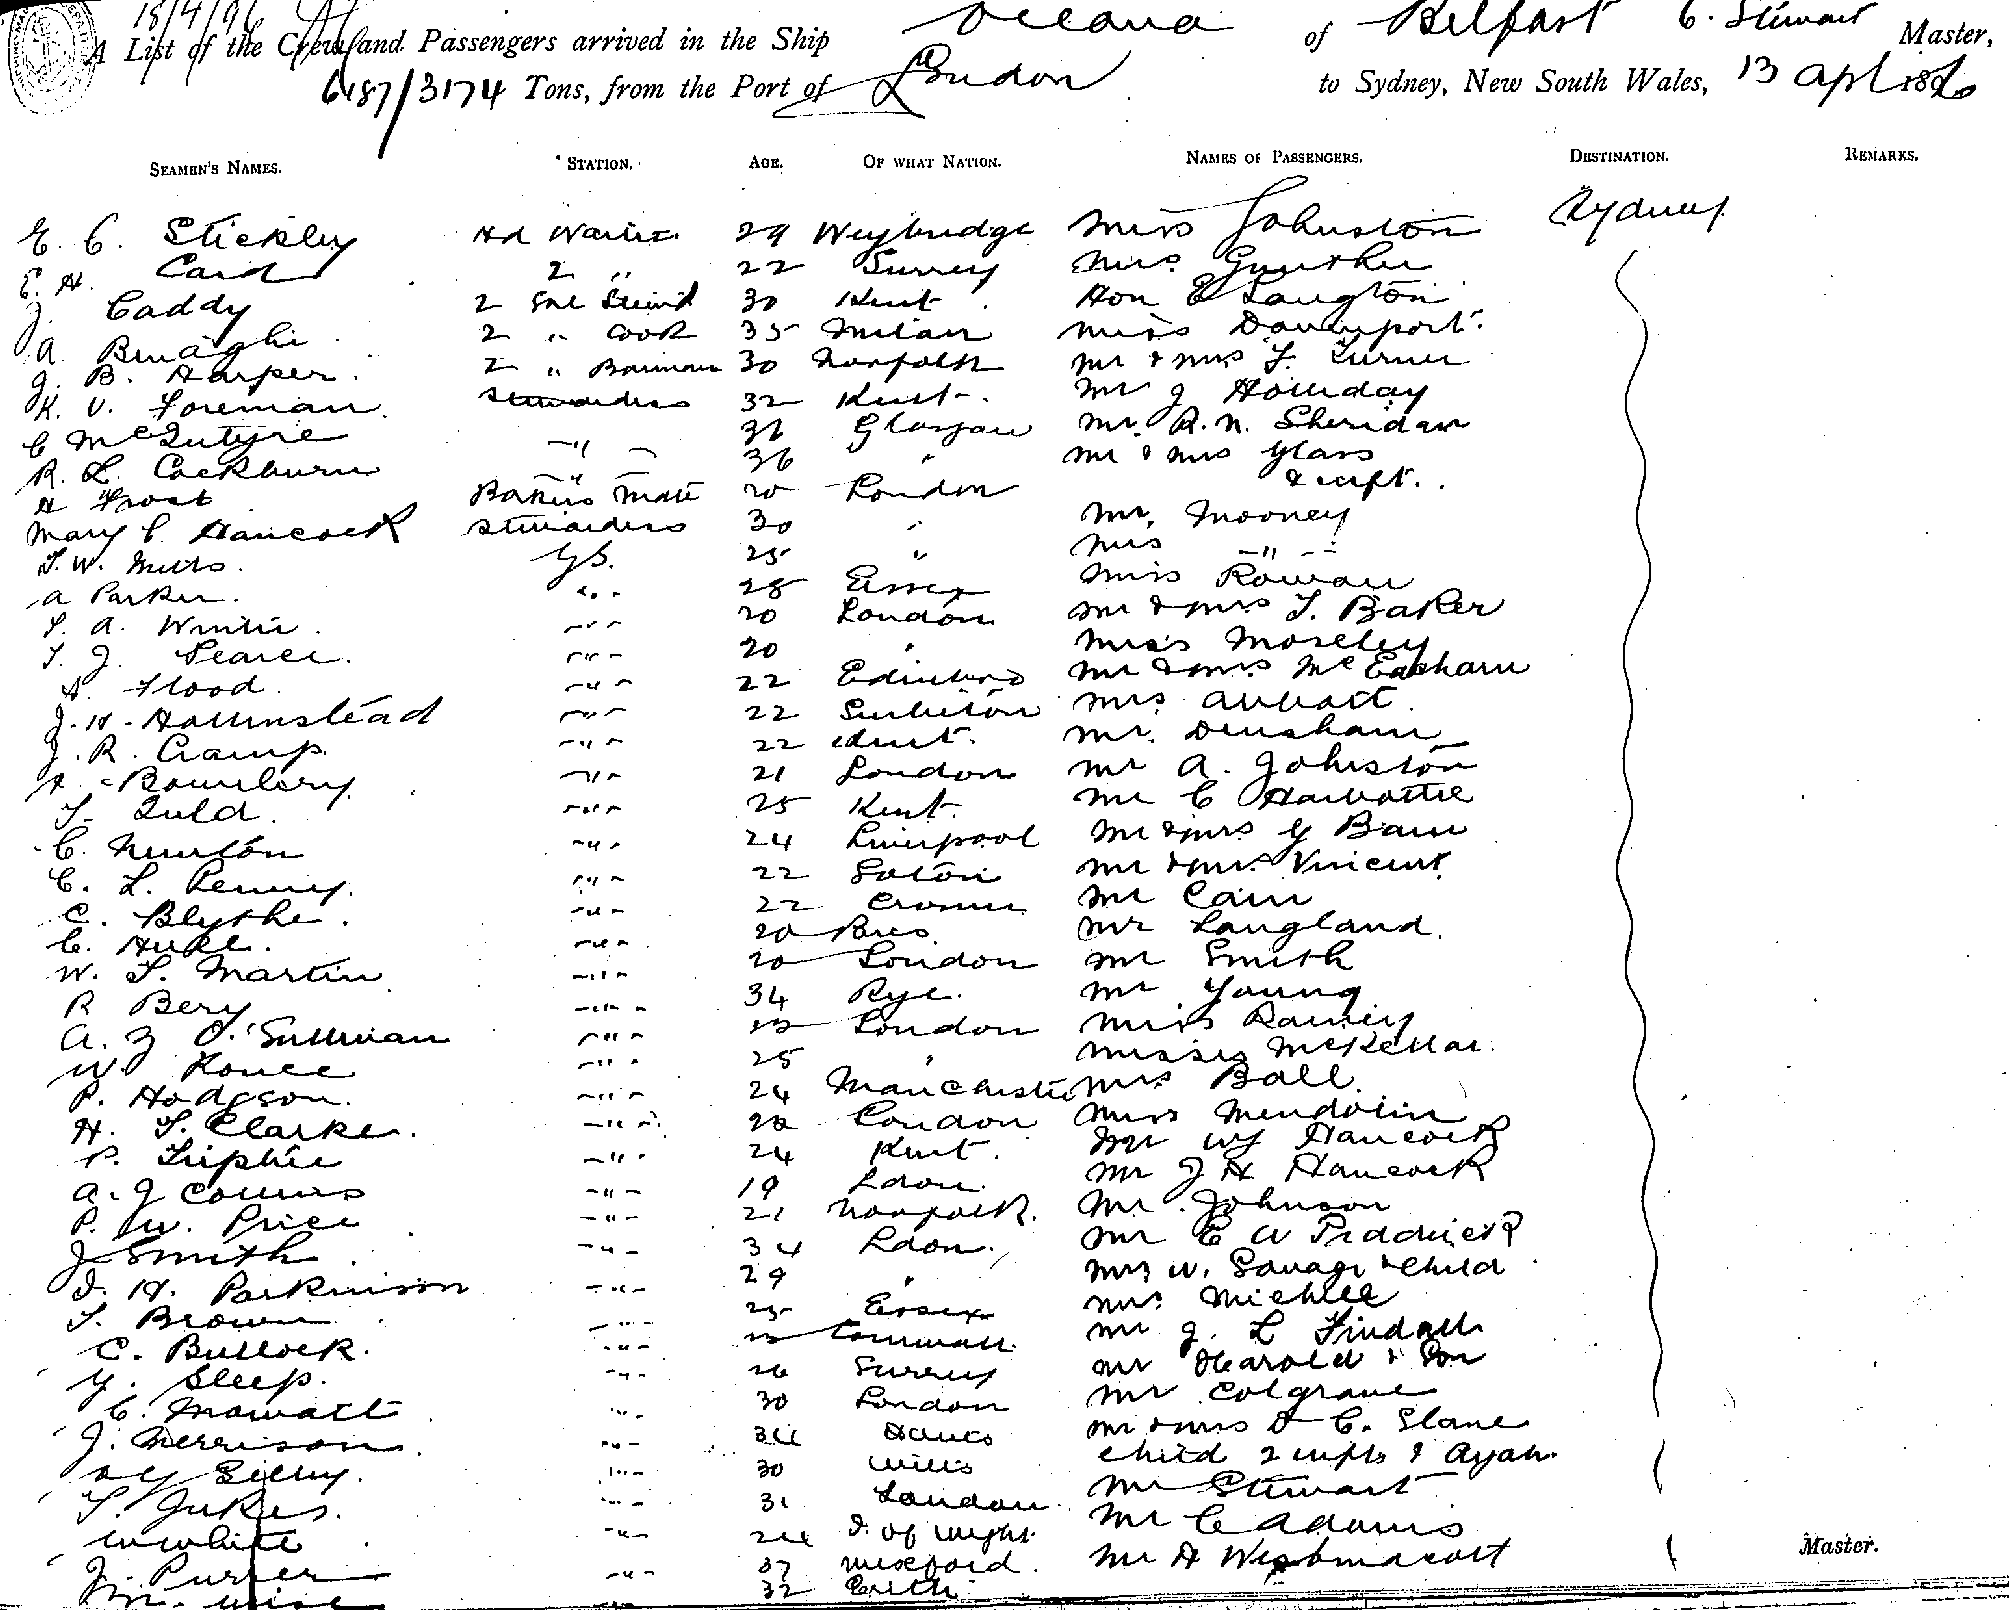 15/4/96
A List of the Crew and Passengers arrived in the Ship Oceana of Belfast C. Stewart Master,
6187/3174 Tons, from the Port of London to Sydney, New South Wales, 13 Apl 1896
SEAMEN'S NAMES. STATION. AGE. OF WHAT NATION. NAMES OF PASSENGERS. DESTINATION. REMARKS.
E. C. Stickley Hd Waiter 29 Weybridge Miss Johnston Sydney
E. H. Card 2 " 22 Surrey Mrs. Gunther
J. Caddy 2 Sal 30 Kent Hon E Langton
A. Binaghi 2 " Cook 35 Milan Miss Davenport.
J. B. Harper. 2 " Barman 30 Norfolk Mr & Mrs F. Turner
K. V. Foreman. Stewardess 32 Kent. Mr J Holliday
C McIntyre " 36 Glasgow Mr. R. N. Sheridan
R. L. Cockburn " 36 " Mr & Mrs Glass
& inft.
H Frost Bakers Mate 20 London
Mary C Hancock Stewardess 30 " Mr. Mooney
T. W. Mills. G.S. 25 " Mrs "
A Parker. " 28 Essex Miss Rowan
T. A. Winter. " 20 London Mr & Mrs T. Baker
T. J. Pearce. " 20 " Miss Moseley
H. Flood. " 22 Edinburg Mr & Mrs McEacharn
J. H. Hollinstead " 22 Surbiton Mrs
J. R. Cramp. " 22 Kent. Mr. Densham
" 21 London Mr A. Johnston
T. Auld. " 25 Kent. Mr C Harbottle
C. Newton " 24 Liverpool Mr & Mrs G Bain
C. L. Penny. " 22 Soton Mr & Mrs Vincent
C. Blythe. " 22 Cromer Mr Cain
C. Huke. " 20 Mr Langland.
W. T. Martin " 20 London Mr Smith
R Bery " 34 Rye. Mr Young
A. O'Sullivan " London Miss Rainey
W Rouce " 25 " Misses McKellar.
P. Hodgson. " 24 Manchester Mrs Ball.
H. T. Clarke. " 20 London Miss
P. " 24 Kent. Mr W J Hancock
A. J Collins " 19 Ldon. Mr J H Hancock
P. W. Price " 21 Norfolk. Mr. Johnson
J Smith " 34 Ldon. Mr E W
J. H. Parkinson " 29 " Mrs W. Savage & Child
T. Brown " 25 Essex Mrs.
C. Bullock. " Cornwall. Mr J. L Tindall
G. Sleep. " 26 Surrey Mr Harold & Son
C. Mowatt " 30 London Mr Colgrave
J. Merrison " Hants Mr & Mrs C. Slane
" 30 Wilts Child 2 infts & Ayah.
T. Jukes. " 31 London Mr Stewart
W White " I of Wight Mr C Adams
J. Purser " 37 Wexford. Mr H Westmacott
Wise " 32 Erith.
Master.